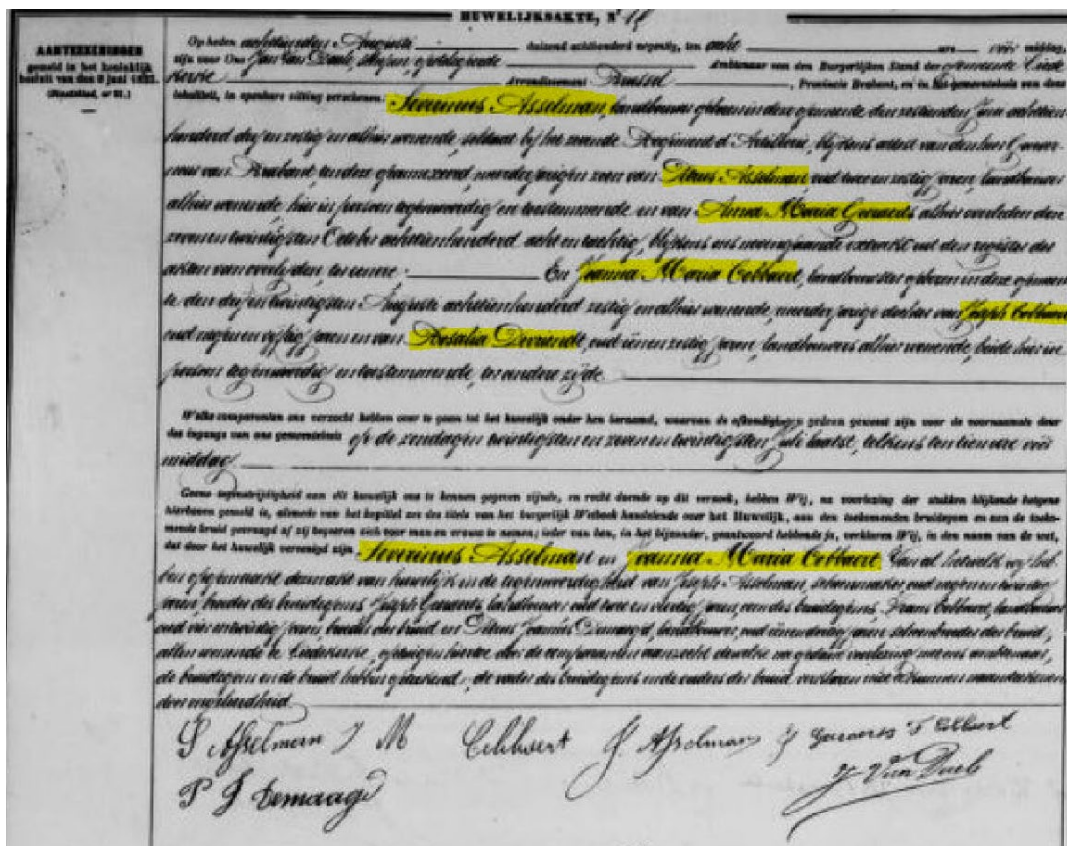 HUWELIJKSAKTE, N°
AANTEEKENINGEN
gemeld in het koninklijk
besluit van den 8 juni 1822.
(Staatsblad, nr 21.)
Op heden achtsten den Augusti duizend achthonderd negentig, ten ure vóór middag,
zijn voor Ons Jan Van schepen, Ambtenaar van den Burgerlijken Stand der gemeente Liede
kerke Arrondissement Brussel, Provincie Brabant, en in het gemeentehuis van deze
lokaliteit, in openbare zitting verschenen Severinus Asselman, landbouwer geboren in deze gemeente den zestienden Juni achttien
honderd drij en zestig en alhier wonende, soldaat bij het zevende Regiment d'Artillerie, blijkens attest van den heer Gouver
neur van Brabant, ten deze geannexeerd, meerderjarigen zoon van Petrus Asselman, oud twee en zestig jaren, landbouwer
alhier wonende, hier in persoon tegenwoordig en toestemmende en van Anna Maria Geeraerts alhier overleden den
zeven en twintigsten October achttienhonderd acht en tachtig, blijkens ons nevensgaande extract uit den register der
akten van overlijden, ter eenre En Joanna Maria Cobbaert, landbouwster geboren in deze gemeen
te den drij en twintigsten Augusti achttienhonderd zestig en alhier wonende, meerderjarige dochter van Joseph Cobbaert
oud negen en vijftig jaren en van Rosalia Devriendt, oud een en zestig jaren, landbouwers alhier wonende, beide hier in
persoon tegenwoordig en toestemmende, ter andere zijde.
Welke comparanten ons verzocht hebben over te gaan tot het huwelijk onder hen beraamd, waarvan de afkondigingen gedaan geweest zijn voor de voornaamste deur
des ingangs van ons gemeentehuis op de zondagen twintigsten en zeven en twintigsten Juli laatst, telkens ten tien ure vóór
middag.
Geene tegenstrijdigheid aan dit huwelijk ons te kennen gegeven zijnde, en recht doende op dit verzoek, hebben Wij, na voorlezing der stukken blijkende hetgene
hierboven gemeld is, alsmede van het kapittel zes des titels van het burgerlijk Wetboek handelende over het Huwelijk, aan den toekomenden bruidegom en aan de toeko-
mende bruid gevraagd of zij begeeren zich voor man en vrouw te nemen; ieder van hen, in het bijzonder, geantwoord hebbende ja, verklaren Wij, in den naam van de wet,
dat door het huwelijk vereenigd zijn Severinus Asselman en Joanna Maria Cobbaert. Van al hetwelk wij heb
ben opgemaakt dezen akt van huwelijk in de tegenwoordigheid van Joseph Asselman, schoenmaker, oud negen en twintig
jaren, broeder des bruidegoms, Joseph Geeraerts, landbouwer oud twee en veertig jaren, oom des bruidegoms, Frans Cobbaert, landbouwer
oud vier en twintig jaren, broeder der bruid en Petrus Joannes Demaegd, landbouwer, oud een en dertig jaren, schoonbroeder der bruid,
allen wonende te Liedekerke, getuigen hiertoe door de comparanten aanzocht dewelke na gedane voorlezing met ons ambtenaar,
de bruidegom en de bruid hebben geteekend, de vader des bruidegoms en de ouders der bruid verklaren niet te kunnen naamteekenen
door ongeleerdheid.
S Asselman J M Cobbaert J Asselman J Geraerts F Cobbaert
P J Demaagd J Van